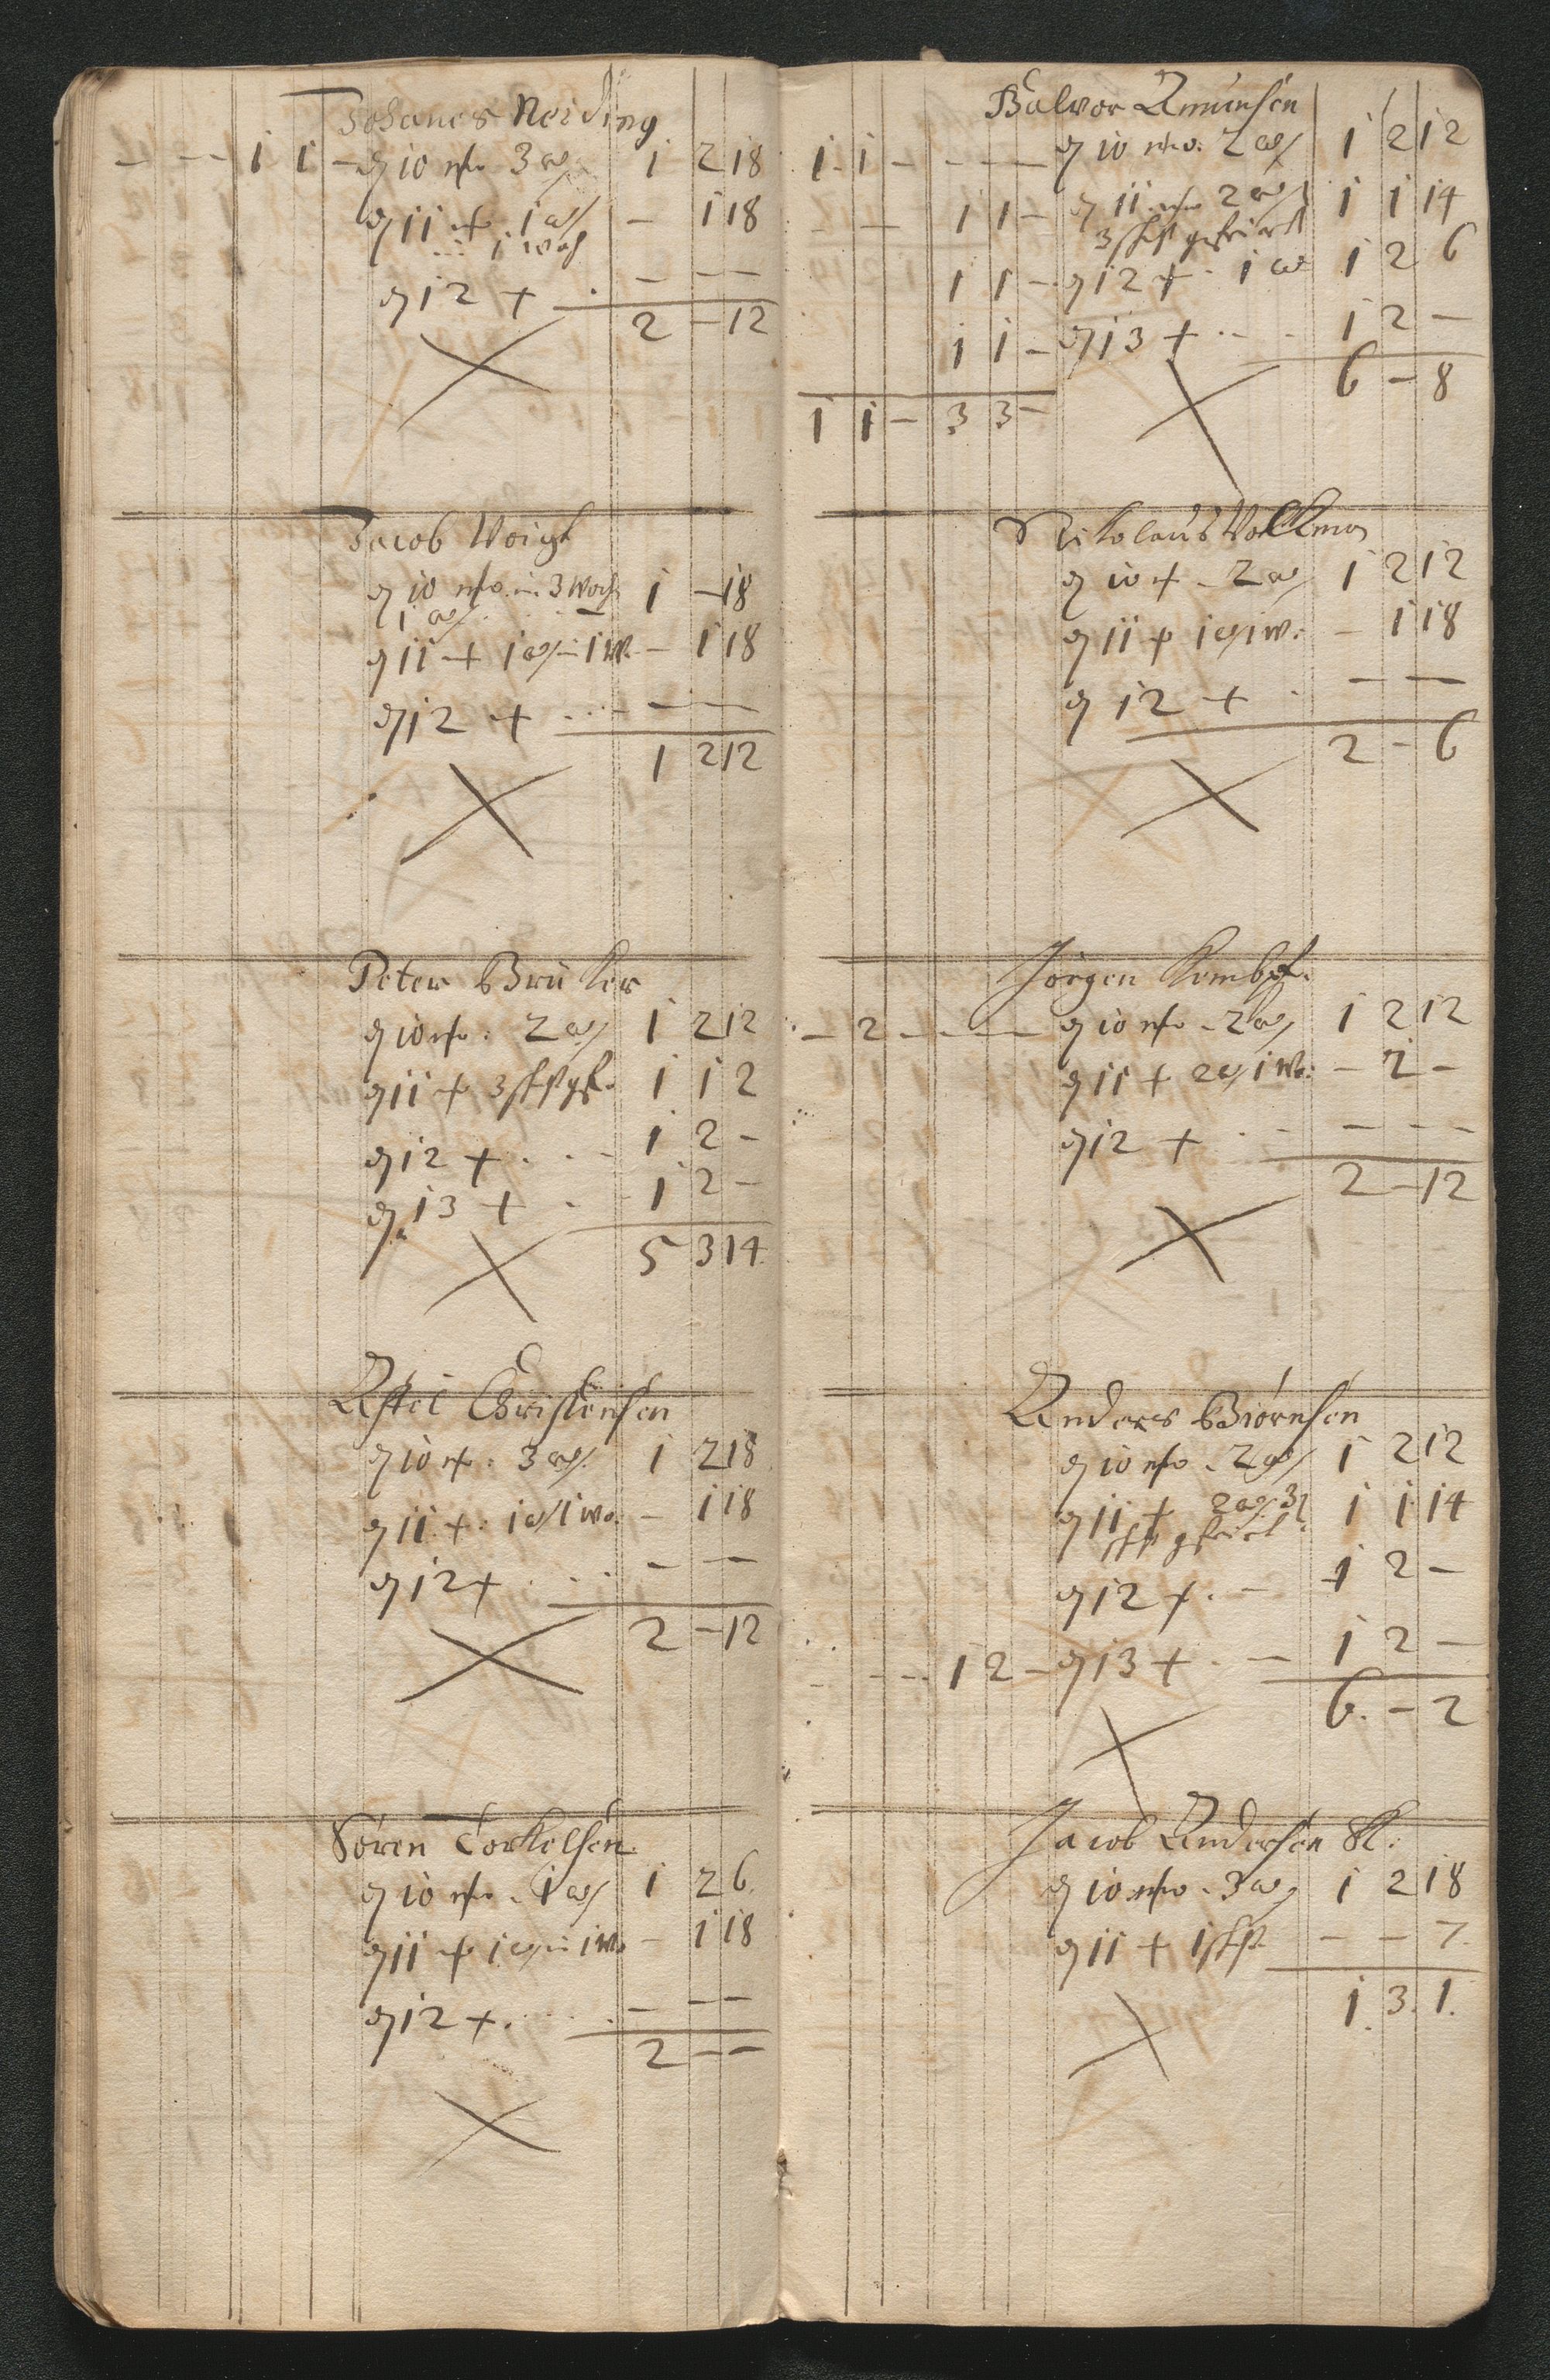 Johanes Neiding
– – – 1 1 – 10 3 w 1 2 18
11 1 w – 1 18
1 woch
12 + – – –
2 – 12
Jacob Voigt
10 3 Woch 1 – 18
1 w
11 + 1 w 1 W – 1 18
12 + – – –
1 2 12
Peter Brüker
10 2 w 1 2 12
11 + 3 1 1 2
12 + 1 2 –
13 + 1 2 –
5 3 14
Christensen
10 3 w 1 2 18
11 + 1 w 1 wo – 1 18
12 + – – –
2 – 12
Sören Torkelsen
10 1 w 1 2 6
11 + 1 w 1 Wo – 1 18
12 + – – –
2 – –
Halvor Amunsen
1 1 – – – – 10 2 w 1 2 12
– – 1 1 – 11 2 w 1 1 14
3
1 1 – 12 + 1 w 1 2 6
1 1 – 13 + 1 2 –
6 – 8
1 1 – 3 3 –
Nikolaus Volkmar
10 + 2 w 1 2 12
11 + 1 w 1 W – 1 18
12 + – – –
2 – 6
Jörgen Kempf
– 2 – – – – 10 2 w 1 2 12
11 + 2 w 1 Wo – 2 –
12 + – – –
2 – 12
Anders Biörnsen
10 2 w 1 2 12
11 + 2 w 3 1 1 14
12 + 1 2 –
– – – 1 2 – 13 + 1 2 –
6 – 2
Jacob Andersen
10 3 w 1 2 18
11 + 1 – – 7
1 3 1